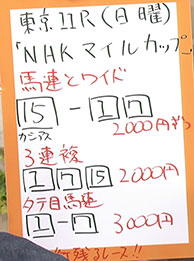 東京11R(日曜)
「NHKマイルカップ」
馬連とワイド
15-1 7
カシアス
2000円ずつ
3連複
1 7 15 2000円
タテ目馬連
1-7 3000円
残るレース!!